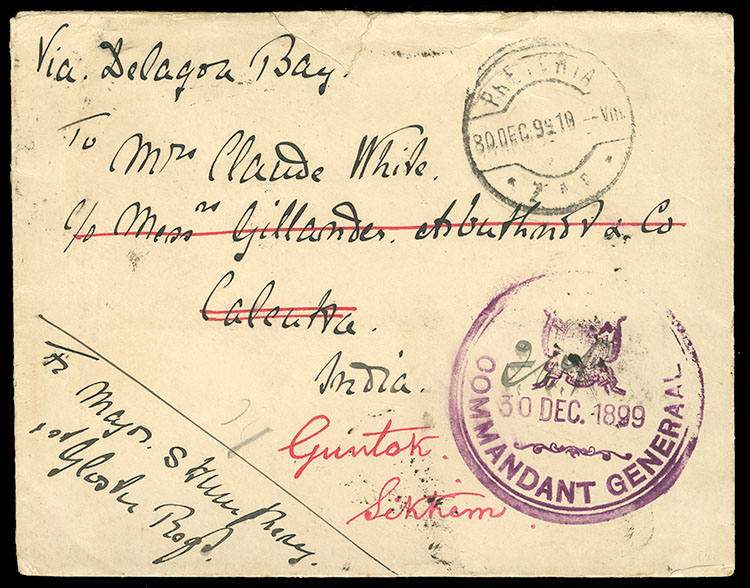 Via. Delagoa Bay.
PRETORIA
30 DEC. 99 10 --Vm
Z.A.R.
To
Mrs Claude White.
c/o Messrs Gillander. Arbuthnot & Co
Calcutta.
India.
Guntok.
Sikkim.
COMMANDANT GENERAAL
30 DEC. 1899
Major. S Humphery.
1st Gloster Regt.